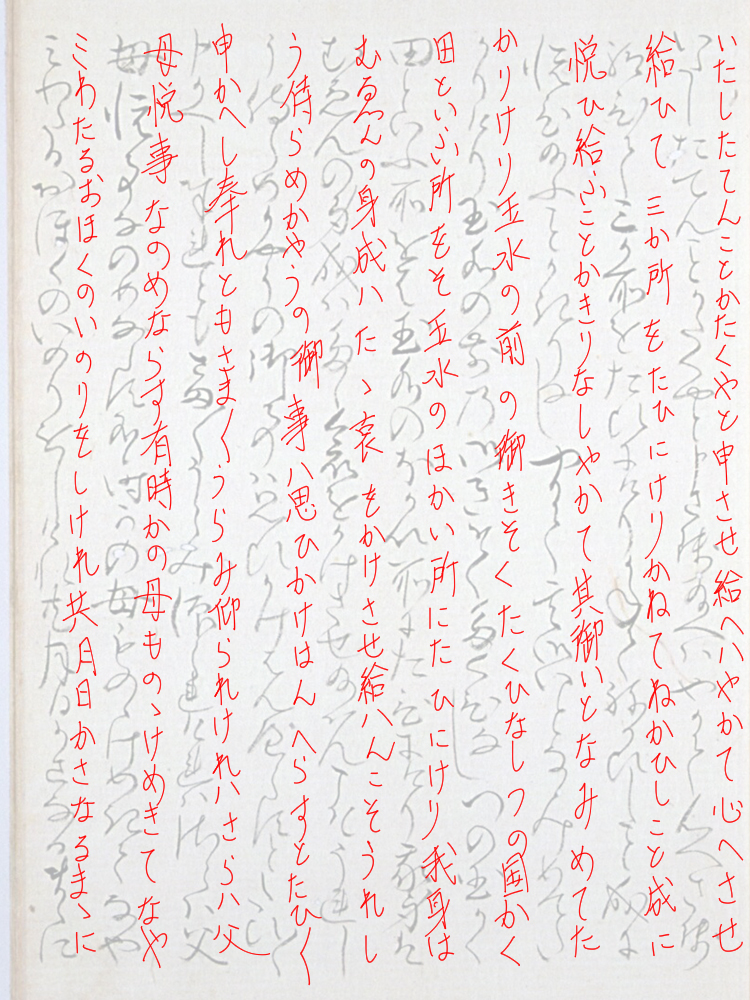 いたしたてんことかたくやと申させ給へハやかて心へさせ
給ひて三か所をたひにけりかねてねかひしこと成に
悦ひ給ふことかきりなしやかて其御いとなみめてた
かりけり玉水の前の御きそくたくひなしつの国かく
田といふ所をそ玉水のほかい所にたひにけり我身は
むゑんの身成ハたゝ哀をかけさせ給ハんこそうれし
う侍らめかやうの御事ハ思ひかけはんへらすとたひ〱
申かへし奉れともさま〱うらみ仰られけれハさらハ父
母悦事なのめならす有時かの母ものゝけめきてなや
みわたるおほくのいのりをしけれ共月日かさなるまゝに